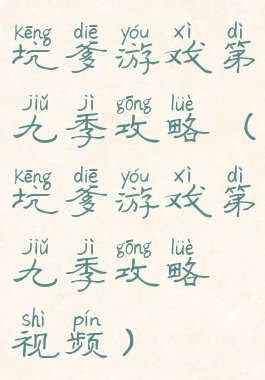 kēng diē yóu xì dì
坑爹游戏第
jiǔ jì gōng lüè
九季攻略（
kēng diē yóu xì dì
坑爹游戏第
jiǔ jì gōng lüè
九季攻略
shì pín
视频）